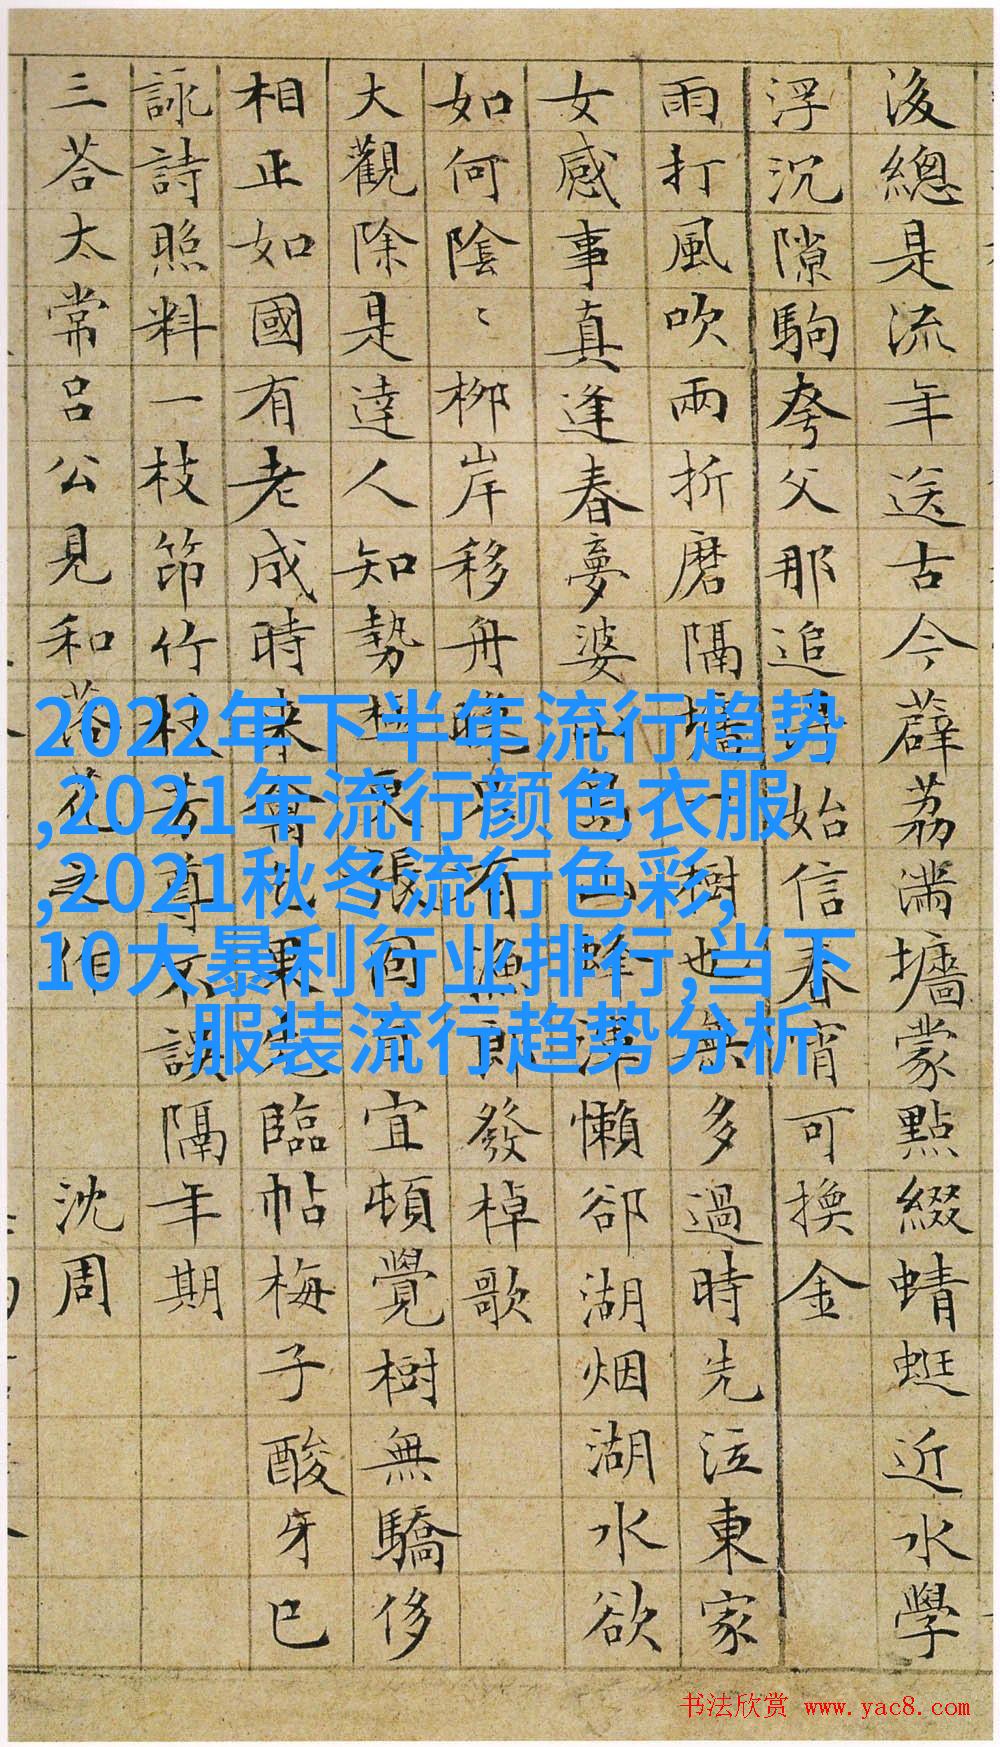 後總是流年送古今薜荔滿墻蒙點綴蜻蜓近水學
浮沉隙駒夸父那追始信春宵可換金
雨打風吹兩折磨隔墻一樹也無多過時先泣東家
女感事真逢春夢婆山蜂渾懶卻湖烟湖水欲
如何陰〻柳岸移舟晚有漁郎發棹歌
大觀除是達人知勢極張同宜頓覺樹無驕侈
相正如國有老成時來會也果先臨帖梅子酸牙巳
詠詩照料一枝笻竹杖芳尊不誤隔年期
三荅太常呂公見和落花之作 沈周
2022年下半年流行趋势
,2021年流行颜色衣服
,2021秋冬流行色彩,
10大暴利行业排行,当下
服装流行趋势分析
书法欣赏 www.yac8.com